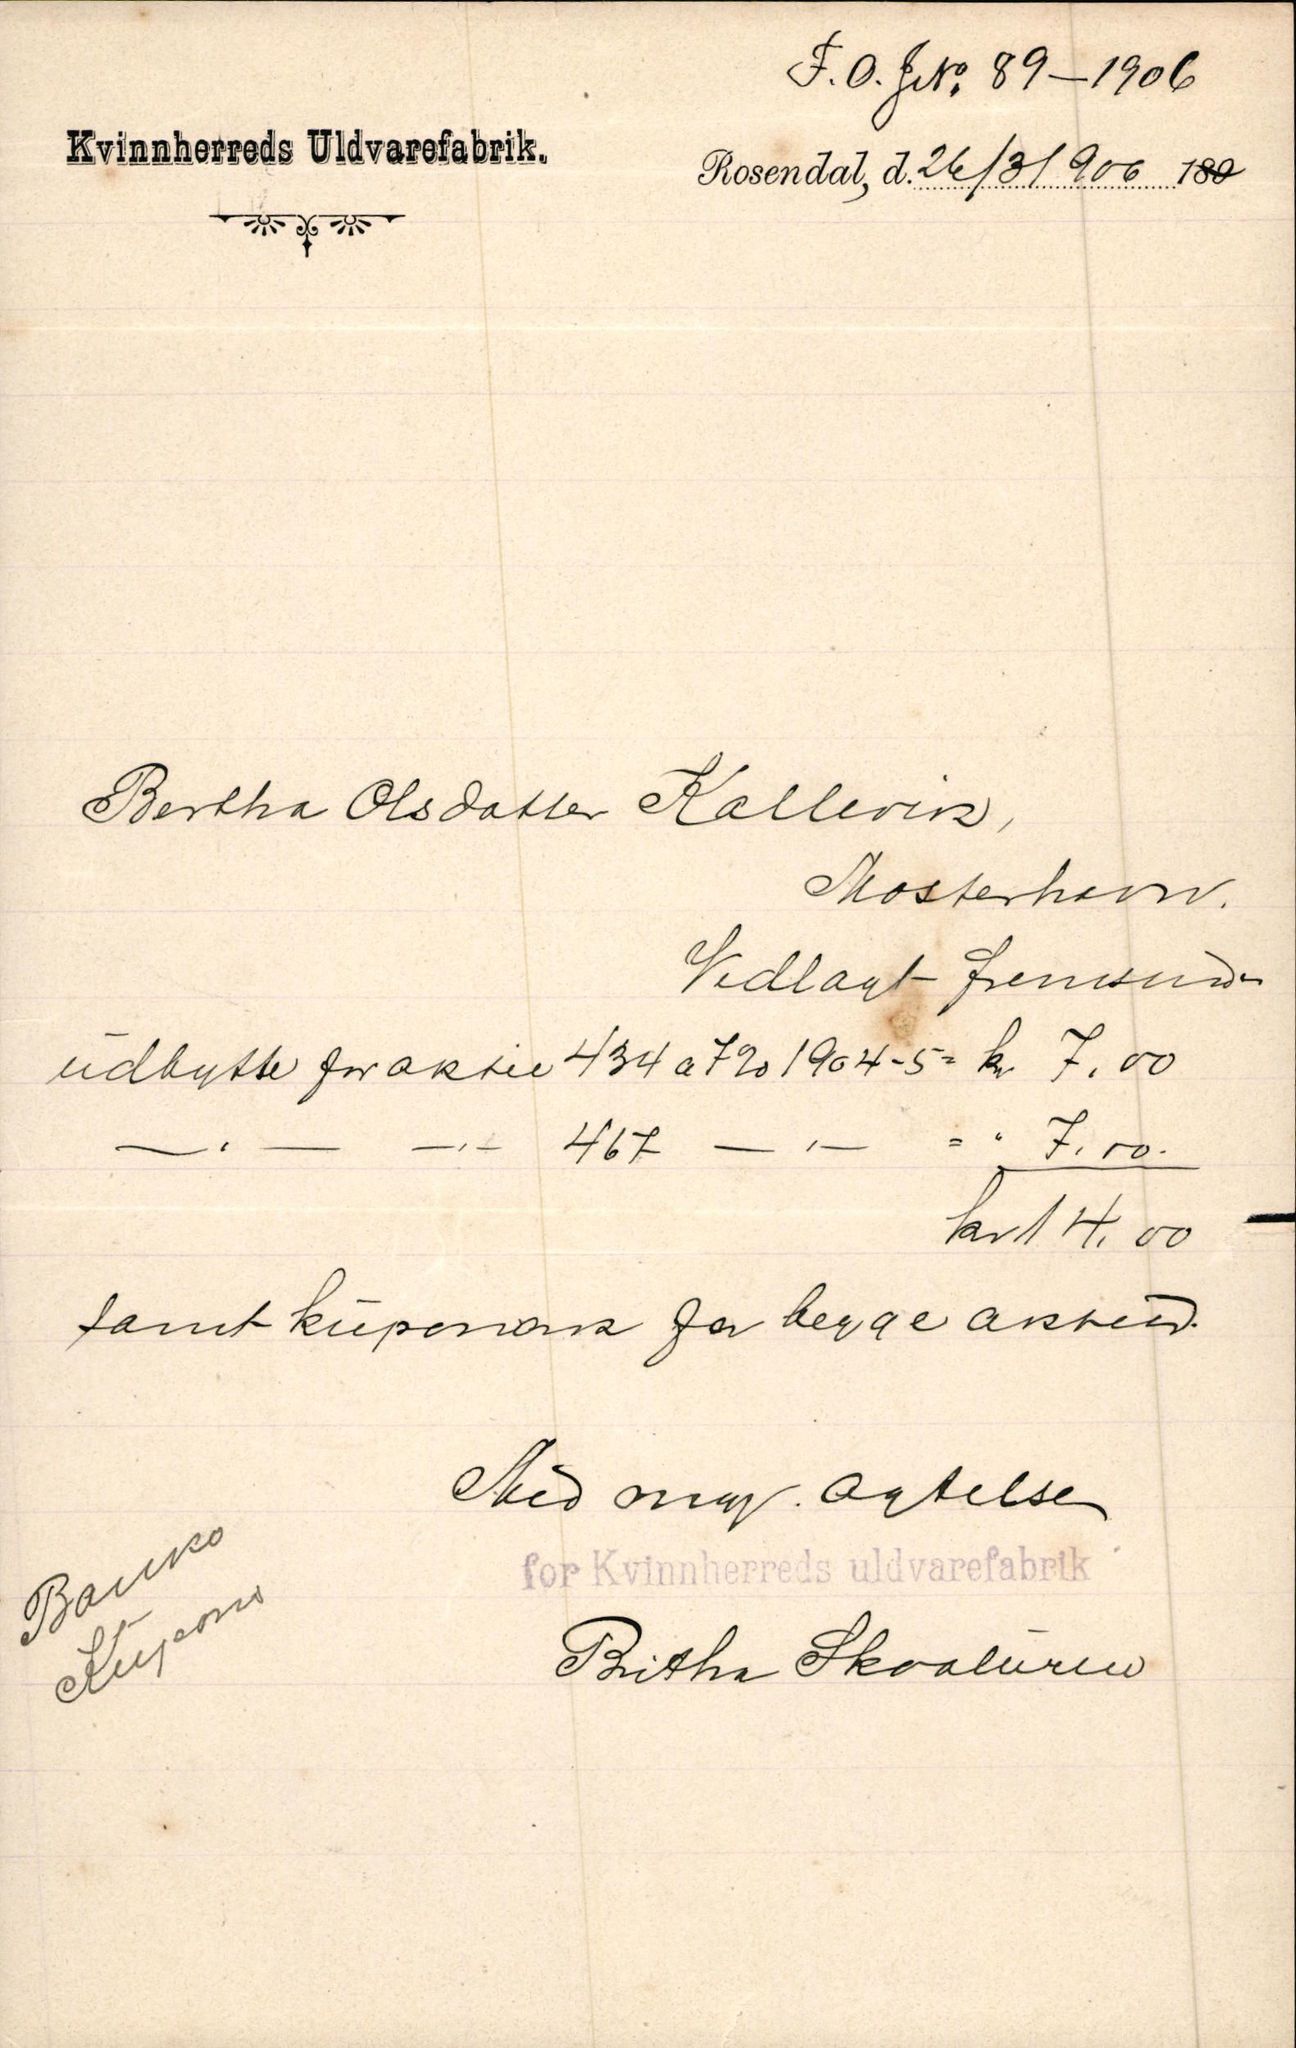 F. O. J№. 89-1906
Kvinnherreds Uldvarefabrik.
Rosendal, d. 26/3 1906 189
Bertha Olsdatter Kallevik,
Mosterhavn.
Vedlagt fremsendes
udbytte for aktie 434 a 7% 1904-5 = kr 7.00
—„— —„— 467 —„— = " 7.00.
kr 14.00
samt kuponark for begge aktier.
Med megn. agtelse
for Kvinnherreds uldvarefabrik
Britha Skaaluren
Banko
Kupons